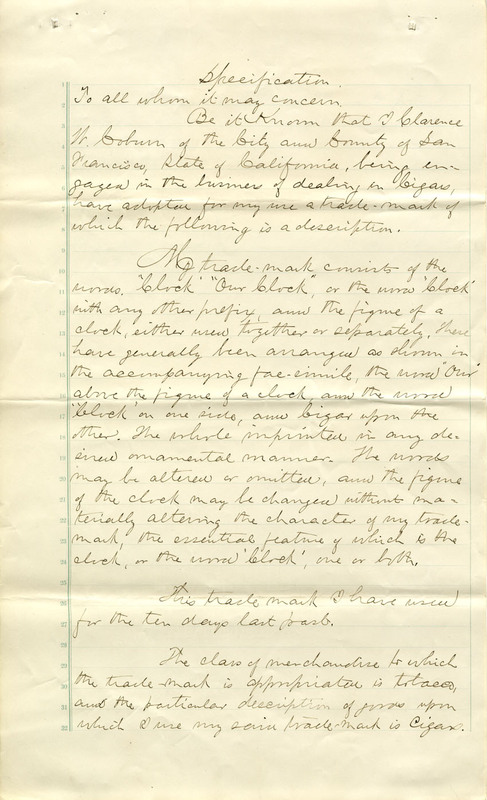 Specification.
To all whom it may concern
Be it Known that I Clarence
W. Coburn of the City and County of San
Francisco, State of California, being en-
gaged in the business of dealing in Cigars,
have adopted for my use a trade-mark of
which the following is a description.
My trade-mark consists of the
words. "Clock" "Our Clock", or the word "Clock"
with any other prefix, and the figure of a
clock, either used together or separately. These
have generally been arranged as shown in
the accompanying fac-simile, the word "Our"
above the figure of a clock, and the word
"Clock" on one side, and Cigar upon the
other. The whole imprinted in any de-
sired ornamental manner. The words
may be altered or omitted, and the figure
of the clock may be changed without ma-
terially altering the character of my trade-
mark, the essential feature of which is the
clock, or the word 'Clock', one or both.
This trade mark I have used
for the ten days last past.
The class of merchandise to which
the trade-mark is appropriated is tobacco,
and the particular description of goods upon
which I use my said trade-mark is Cigars.